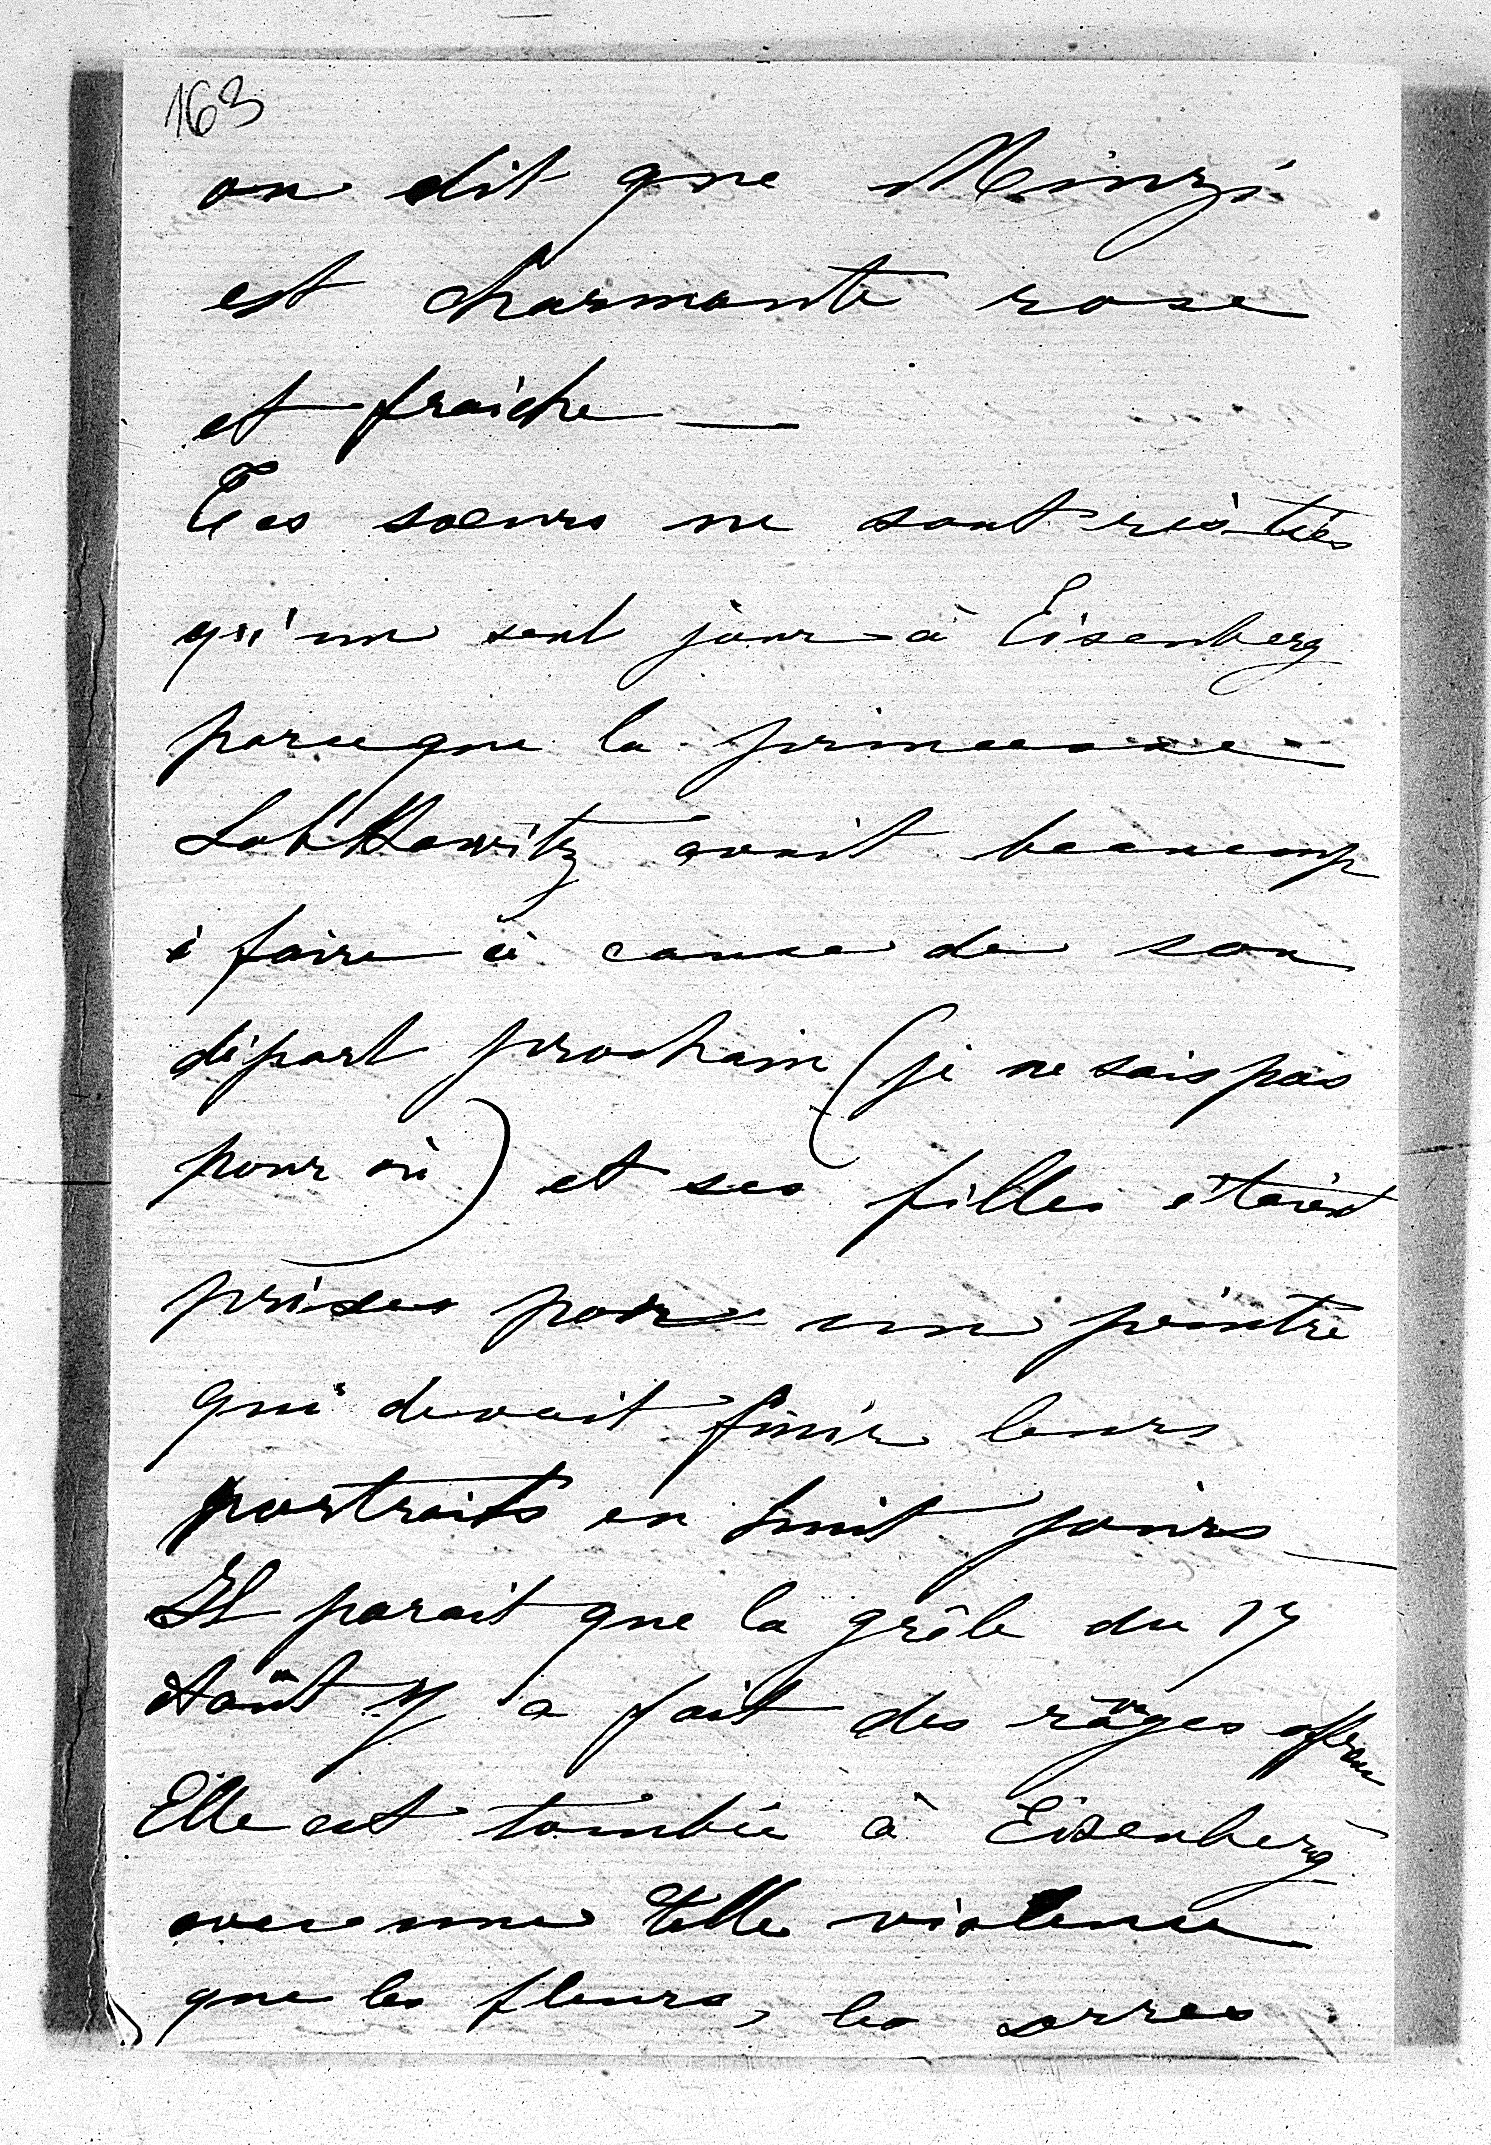 163
on dit que Minzi
est charmante rose
et fraîche —
Tes soeurs ne sont restées
qu'un seul jour à Eisenberg
parceque la princesse
Lobkowitz avait beaucoup
à faire à cause de son
départ prochain (je ne sais pas
pour où) et ses filles étaient
prises par un peintre
qui devait finir leurs
portraits en huit jours —
Il parait que la grêle du 17
Août y a fait des râges affreux
Elle est tombée à Eisenberg
avec une telle violence
que les fleurs, les serres